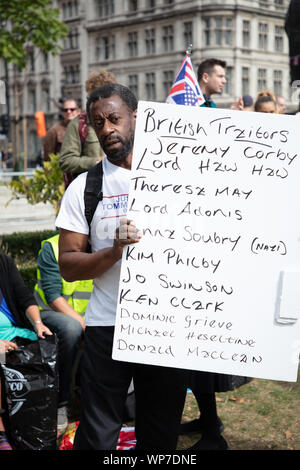 British Traitors
Jeremy Corby
Lord Haw Haw
Theresa May
Lord Adonis
Anna Soubry (NAZI)
Kim Philby
Jo Swinson
Ken Clark
Dominic Grieve
Michael Heseltine
Donald MacLean
alamy
Image ID: WP7DNE
www.alamy.com